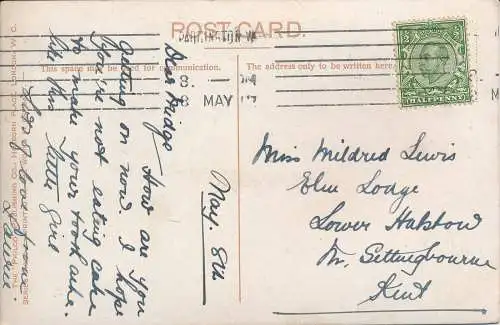 POST CARD.
PADDINGTON W
This space may be used for communication.
The address only to be written here.
8.
8 MAY
HALFPENNY
May. 8th
Dear Midge
How are you
getting on now. I hope
you're not eating cake
to make your tooth ache.
like this little girl
love from
Laurie
Miss Mildred Lewis
Elm Lodge
Lower Halstow
Nr. Sittingbourne
Kent
THE PHILCO PUBLISHING CO., HOLBORN PLACE, LONDON W.C.